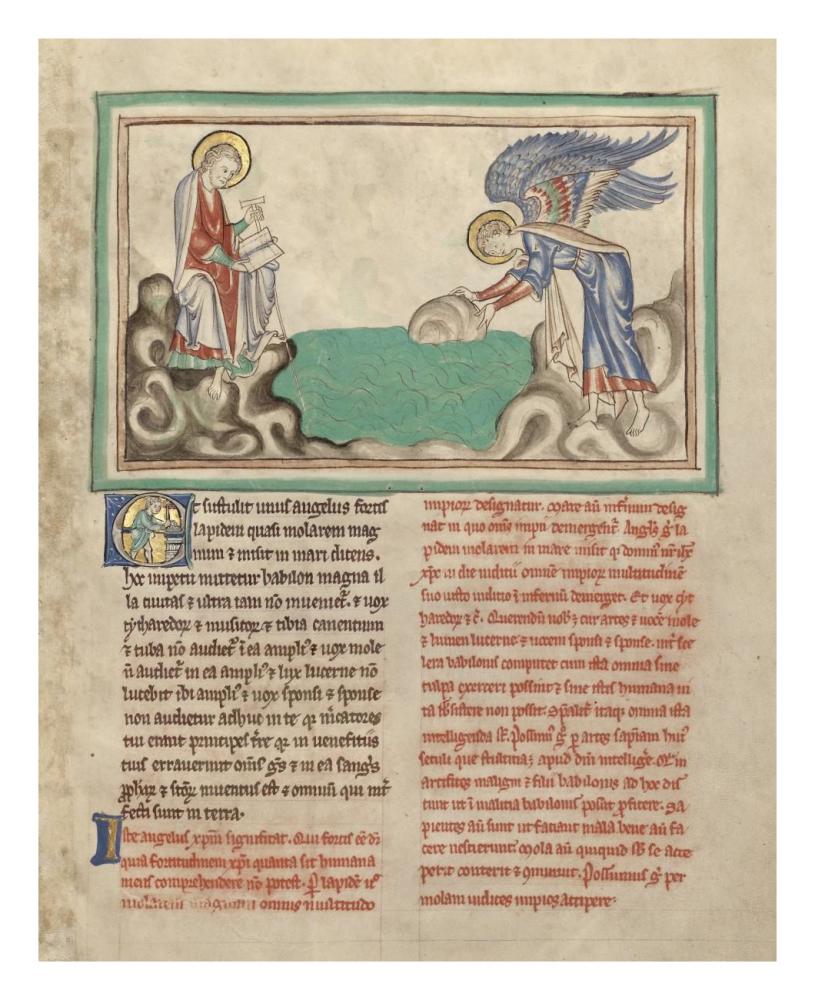 Et sustulit unus angelus fortis
lapidem quasi molarem mag
num ⁊ misit in mari dicens.
hoc impetu mittetur babilon magna il
la ciuitas ⁊ ultra iam nō inueniet᷑. ⁊ uox
cytharedoꝝ ⁊ musicoꝝ ⁊ tibia canentium
⁊ tuba nō audiet᷑ ī ea ampli᷒ ⁊ uox mole
ñ audiet᷑ in ea ampli᷒ ⁊ lux lucerne nō
lucebit ibi ampli᷒ ⁊ uox sponsi ⁊ sponse
non audietur adhuc in te qr m̄catores
tui erant principes t̄re qr in ueneficiis
tuis errauerunt om̄s gn̄s ⁊ in ea sangᷤs
ꝓphaꝝ ⁊ sc̄oꝝ inuentus est ⁊ omnium qui int̄
fecti sunt in terra.
Iste angelus xp̄m significat. Qui fortis eē dr̄
quia fortitudinem xp̄i quanta sit humana
mens comprehendere nō potest. P lapidē u᷒
molarem magnum omnis multitudo
impioꝝ designatur. Mare aū infernum desig
nat in quo om̄s impii demergent᷑. Angl̄s g̊ la
pidem molarem in mare misit qr domin᷒ nr̄ ih̄c
xp̄c in die iudicii omnem impioꝝ multitudinē
suo iusto iudicio ī infernū demerget. Et uox cyt
haredoꝝ ⁊ c̄. Querendū nob̄ ē cur artes ⁊ uocē mole
⁊ lumen lucerne ⁊ uocem sponsi ⁊ sponse. int̄ sce
lera babilonis computet cum ista omnia sine
culpa exerceri possint ⁊ sine istis humana ui
ta subsistere non possit. Sp̄alit᷑ itaqꝫ omnia ista
intelligenda st̄. Possum᷒ g̊ p artes sapiam hui᷒
seculi que stulticia ē apud dm̄ intelliḡe. Qr̄
artifices maligni ⁊ faū babilonis ad hoc dis
cunt ut ī malicia babilonis possit ꝓficere. Sa
pientes aū sunt ut faciant mala bene aū fa
cere nescierunt. Mola aū quicquid sb̄ se acce
perit conterit ⁊ ꝯminuit. Possumus g̊ per
molam iudices impios accipere.